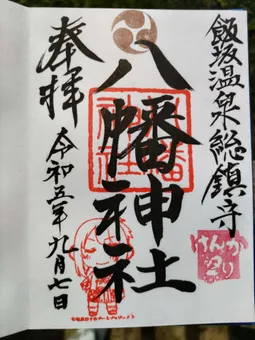 飯坂温泉総鎮守
けんか祭り
八幡神社
奉拝
令和五年九月七日